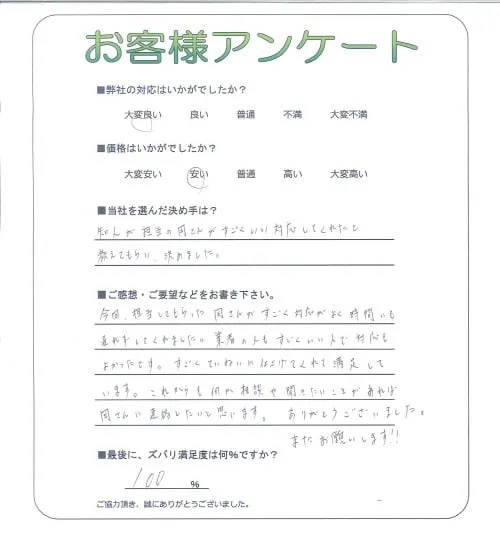 お客様アンケート
■弊社の対応はいかがでしたか？
大変良い 良い 普通 不満 大変不満
■価格はいかがでしたか？
大変安い 安い 普通 高い 大変高い
■当社を選んだ決め手は？
知人が担当の岡さんがすごくいい対応してくれたと
教えてもらい、決めました。
■ご感想・ご要望などをお書き下さい。
今回、担当してもらった岡さんがすごく対応がよく時間にも
してくれました。業者の人もすごくいい人で対応も
よかったです。すごくていねいに仕上げてくれて満足して
います。これからも何か相談や聞きたいことがあれば
岡さんに連絡したいと思います。ありがとうございました。
またお願いします!!
■最後に、ズバリ満足度は何%ですか？
100 %
ご協力頂き、誠にありがとうございました。